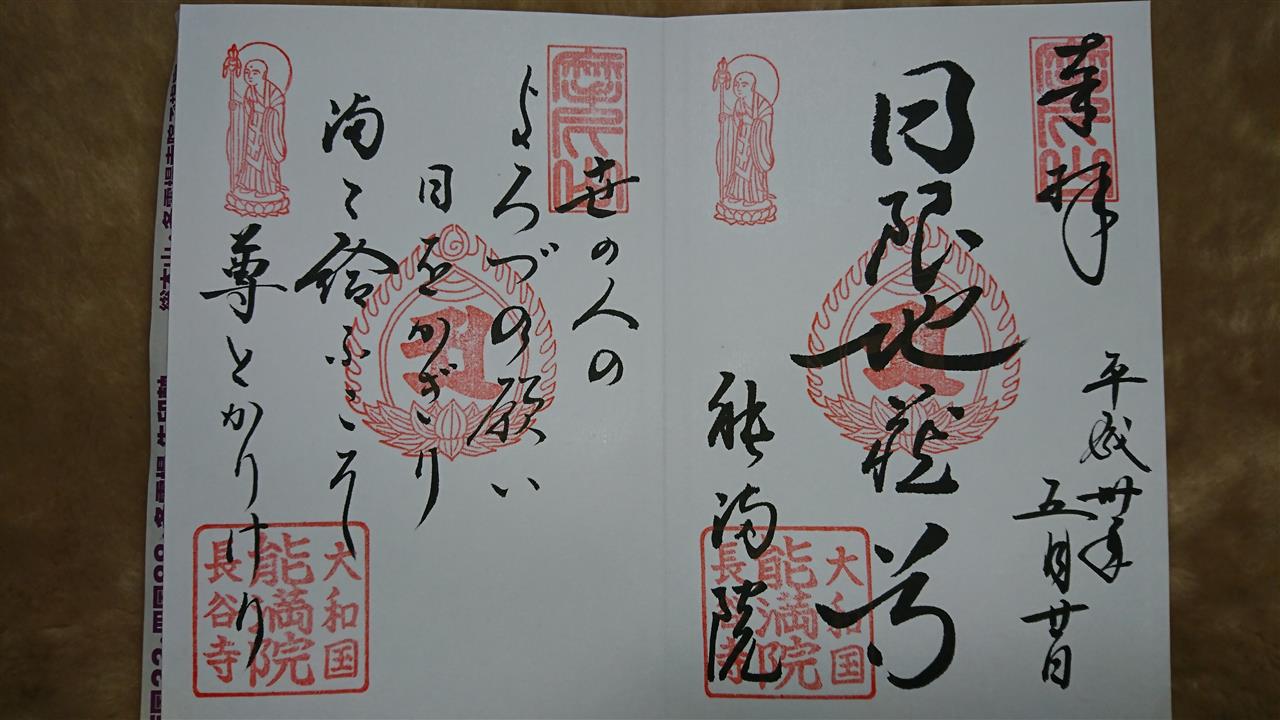 奉拝
平成卅年
五月廿日
日限地蔵尊
能満院
大和国
能満院
長谷寺
世の人の
よろづの願い
日をかぎり
満 給ふこそ
尊とかりけり
大和国
能満院
長谷寺